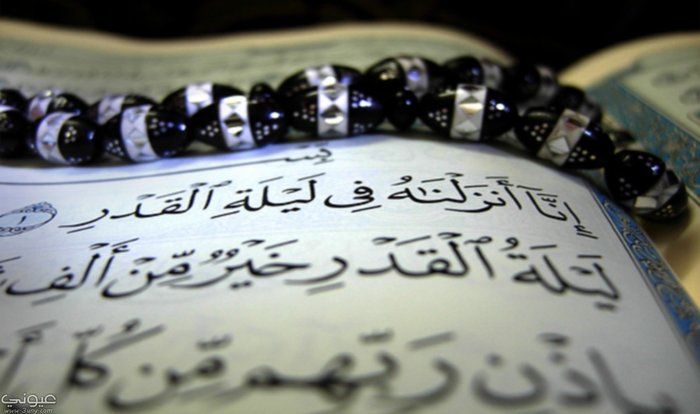 إِنَّآ أَنزَلْنَٰهُ فِى لَيْلَةِ ٱلْقَدْرِ ١
لَيْلَةُ ٱلْقَدْرِ خَيْرٌ مِّنْ أَلْفِ
بِإِذْنِ رَبِّهِم مِّن كُلِّ
عيوني
www.3uny.com